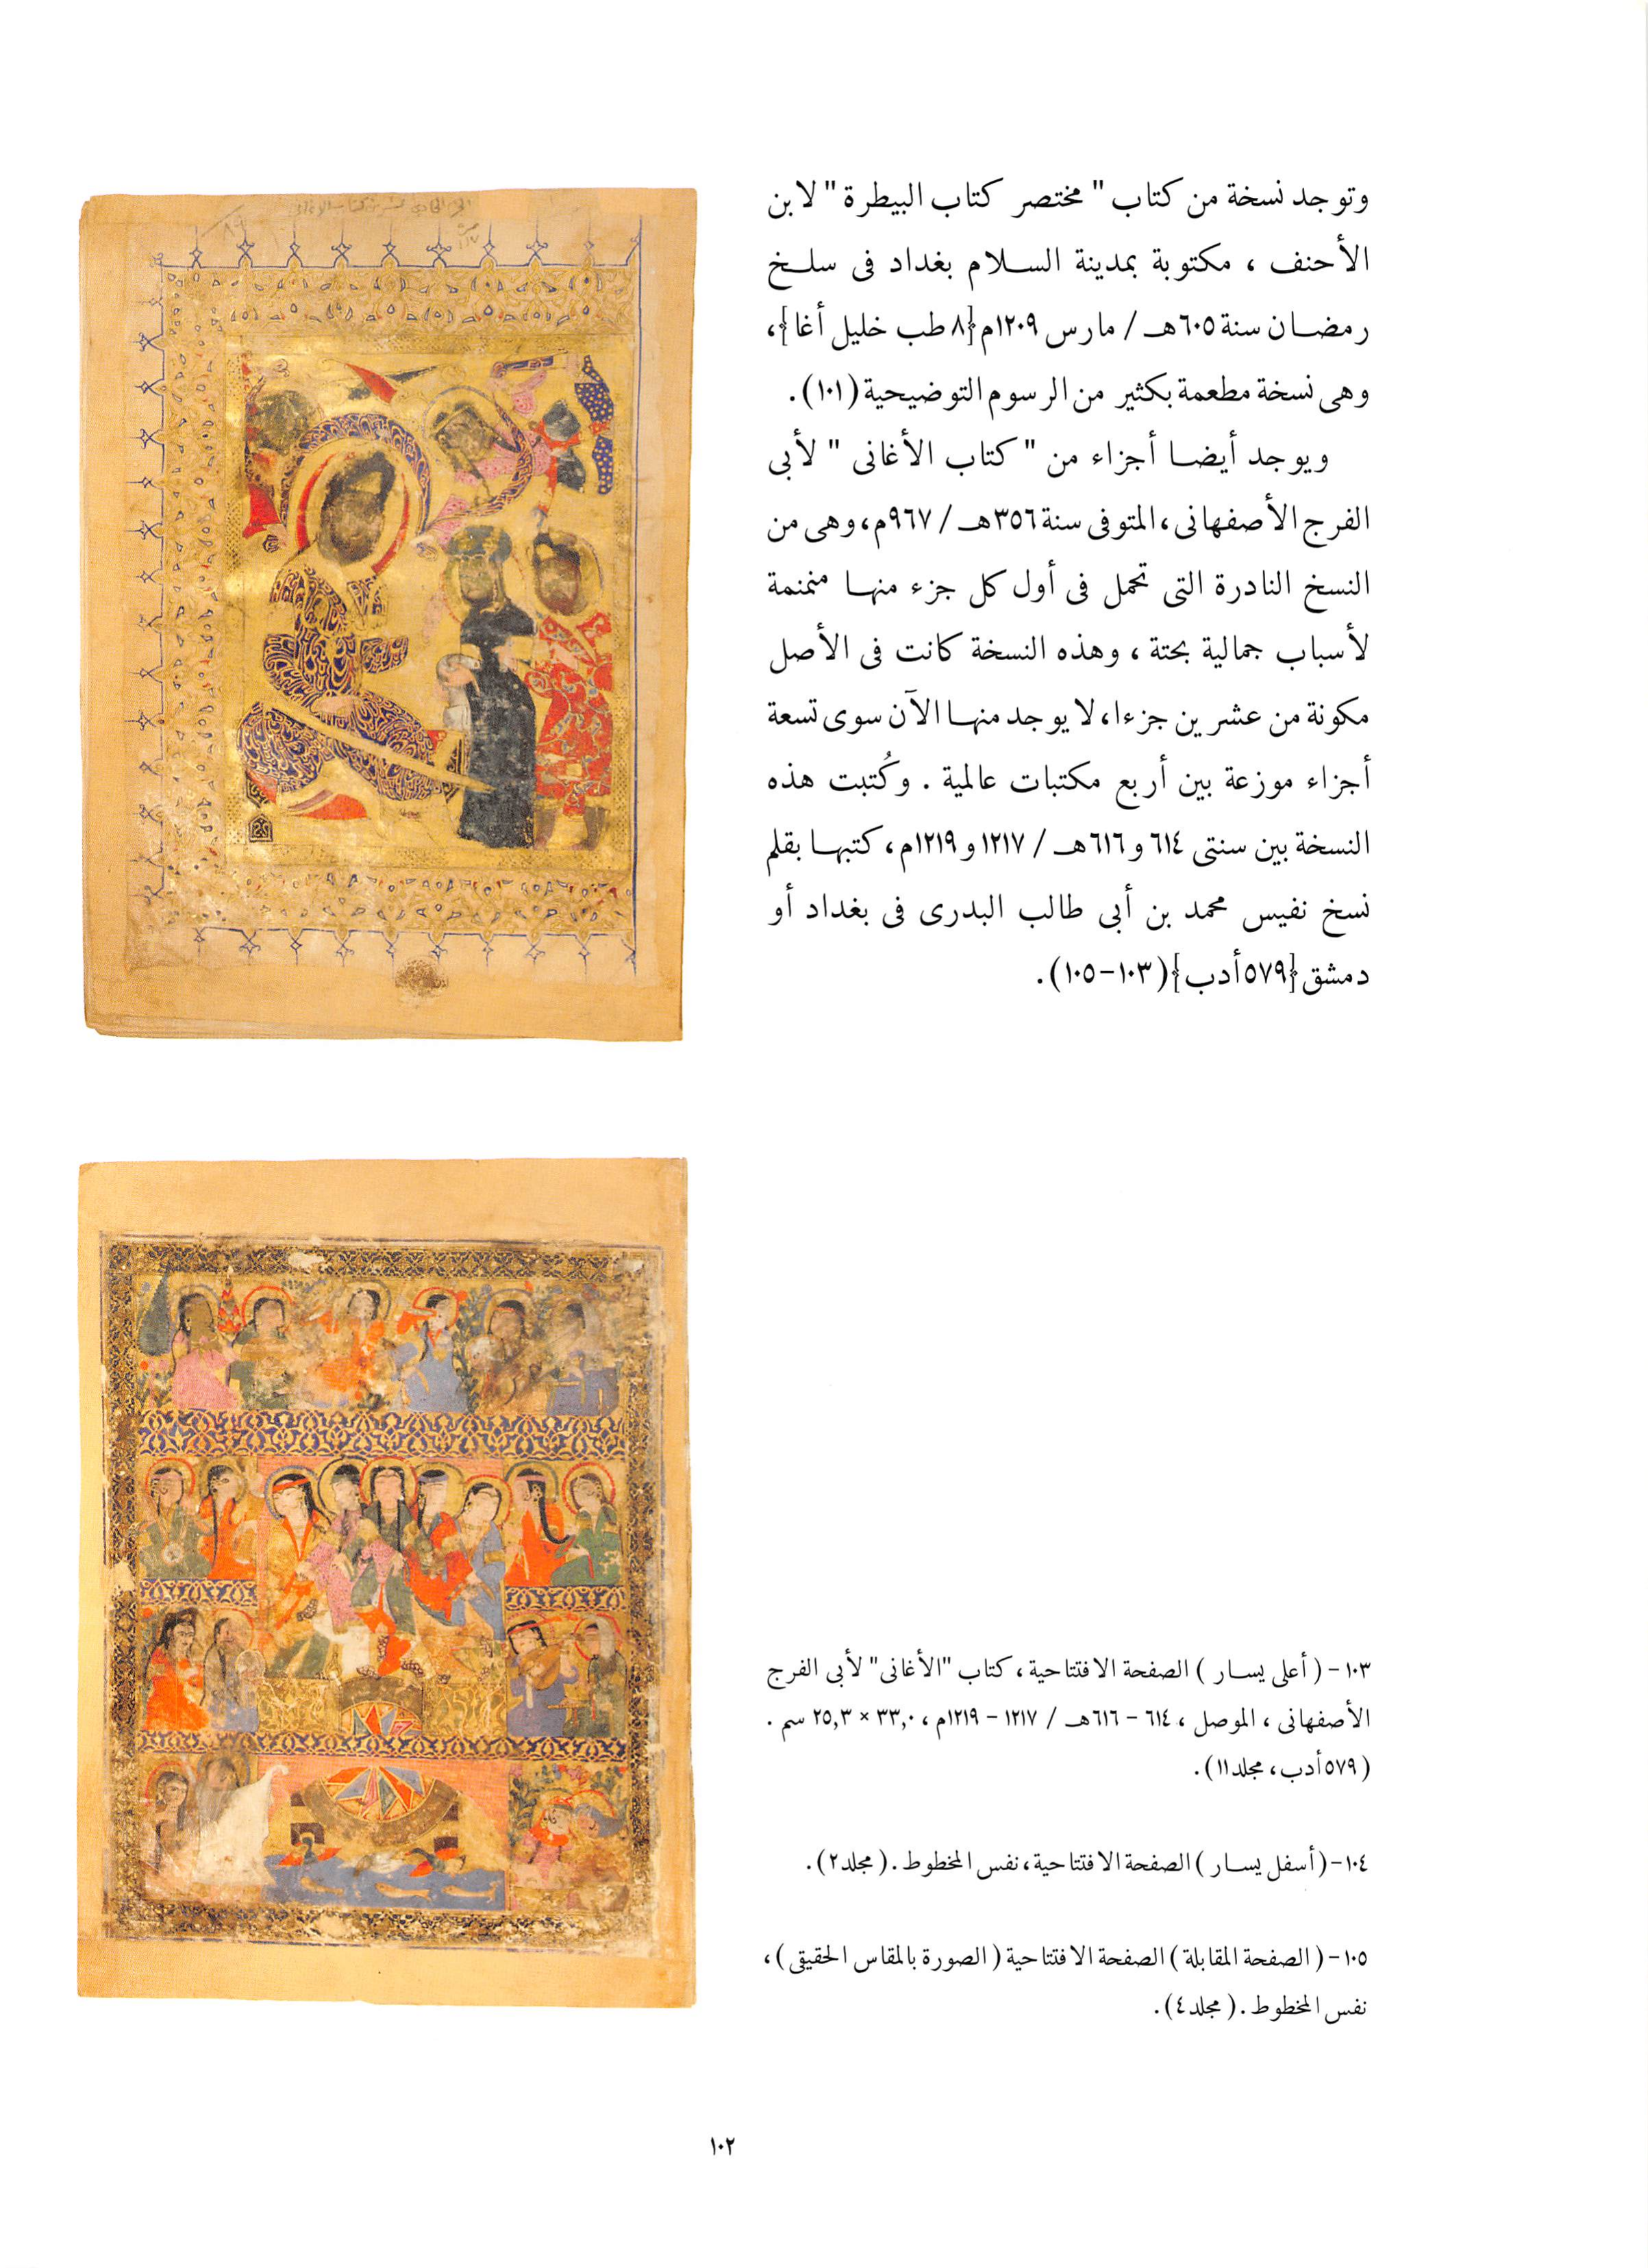 وتوجد نسخة من كتاب " مختصر كتاب البيطرة " لابن
الأحنف ، مكتوبة بمدينة السلام بغداد فى سلخ
رمضان سنة ٦٠٥هـ / مارس ١٢٠٩م{٨ طب خليل أغا}،
وهى نسخة مطعمة بكثير من الرسوم التوضيحية (١٠١) .
ويوجد أيضا أجزاء من " كتاب الأغانى " لأبى
الفرج الأصفهانى ، المتوفى سنة ٣٥٦هـ / ٩٦٧م، وهى من
النسخ النادرة التى تحمل فى أول كل جزء منها منمنمة
لأسباب جمالية بحتة ، وهذه النسخة كانت فى الأصل
مكونة من عشرين جزءا، لا يوجد منها الآن سوى تسعة
أجزاء موزعة بين أربع مكتبات عالمية . وكُتبت هذه
النسخة بين سنتى ٦١٤ و ٦١٦هـ / ١٢١٧ و ١٢١٩م ، كتبها بقلم
نسخ نفيس محمد بن أبى طالب البدرى فى بغداد أو
دمشق {٥٧٩أدب} (١٠٣-١٠٥) .
١٠٣- ( أعلى يسار ) الصفحة الافتتاحية ، كتاب "الأغانى" لأبى الفرج
الأصفهانى ، الموصل ، ٦١٤ - ٦١٦هـ / ١٢١٧ - ١٢١٩م ، ٣٣,٠ × ٢٥,٣ سم .
( ٥٧٩أدب ، مجلد ١١) .
١٠٤- ( أسفل يسار ) الصفحة الافتتاحية ، نفس المخطوط . ( مجلد ٢) .
١٠٥- ( الصفحة المقابلة ) الصفحة الافتتاحية ( الصورة بالمقاس الحقيقى ) ،
نفس المخطوط . ( مجلد ٤) .
١٠٢